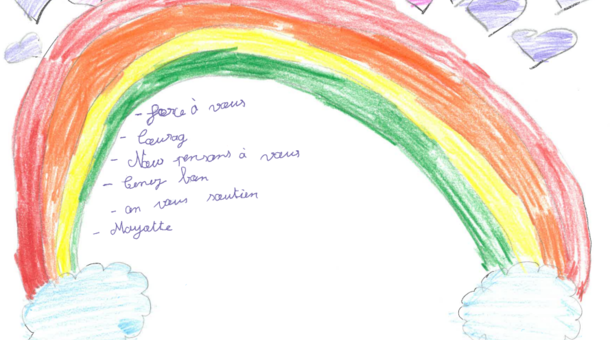 - force à vous
- Courag
- Nous pensons à vous
- Tenez bon
- on vous soutien
- Mayotte